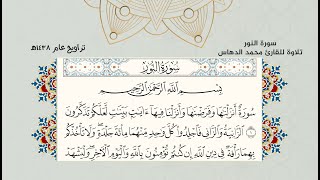 سورة النور
تلاوة للقارئ محمد الدهاس
تراويح عام ١٤٣٨هـ
سُورَةُ النُّورِ
بِسْمِ اللَّهِ الرَّحْمَٰنِ الرَّحِيمِ
سُورَةٌ أَنزَلْنَاهَا وَفَرَضْنَاهَا وَأَنزَلْنَا فِيهَا ءَايَاتٍ بَيِّنَاتٍ لَّعَلَّكُمْ تَذَكَّرُونَ
١ الزَّانِيَةُ وَالزَّانِي فَاجْلِدُوا كُلَّ وَاحِدٍ مِّنْهُمَا مِائَةَ جَلْدَةٍ وَلَا تَأْخُذْكُم
بِهِمَا رَأْفَةٌ فِي دِينِ اللَّهِ إِن كُنتُمْ تُؤْمِنُونَ بِاللَّهِ وَالْيَوْمِ الْآخِرِ وَلْيَشْهَدْ